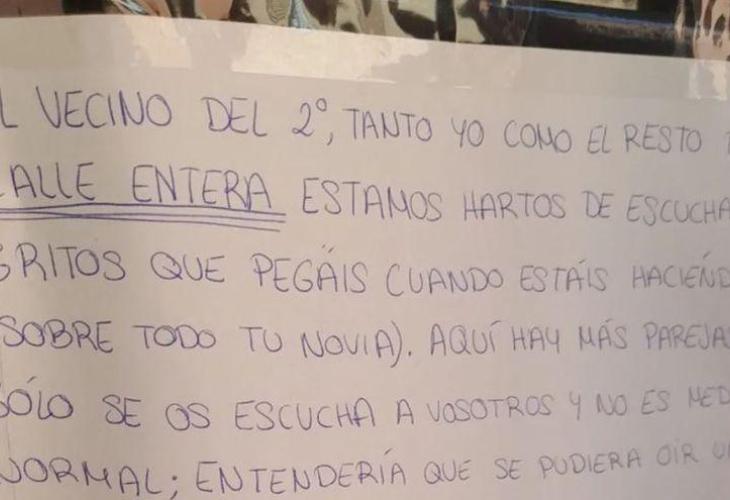 L VECINO DEL 2º, TANTO YO COMO EL RESTO
CALLE ENTERA ESTAMOS HARTOS DE ESCUCHA
GRITOS QUE PEGÁIS CUANDO ESTÁIS HACIÉND
(SOBRE TODO TU NOVIA). AQUÍ HAY MÁS PAREJAS
SÓLO SE OS ESCUCHA A VOSOTROS Y NO ES MED
NORMAL; ENTENDERÍA QUE SE PUDIERA OIR U